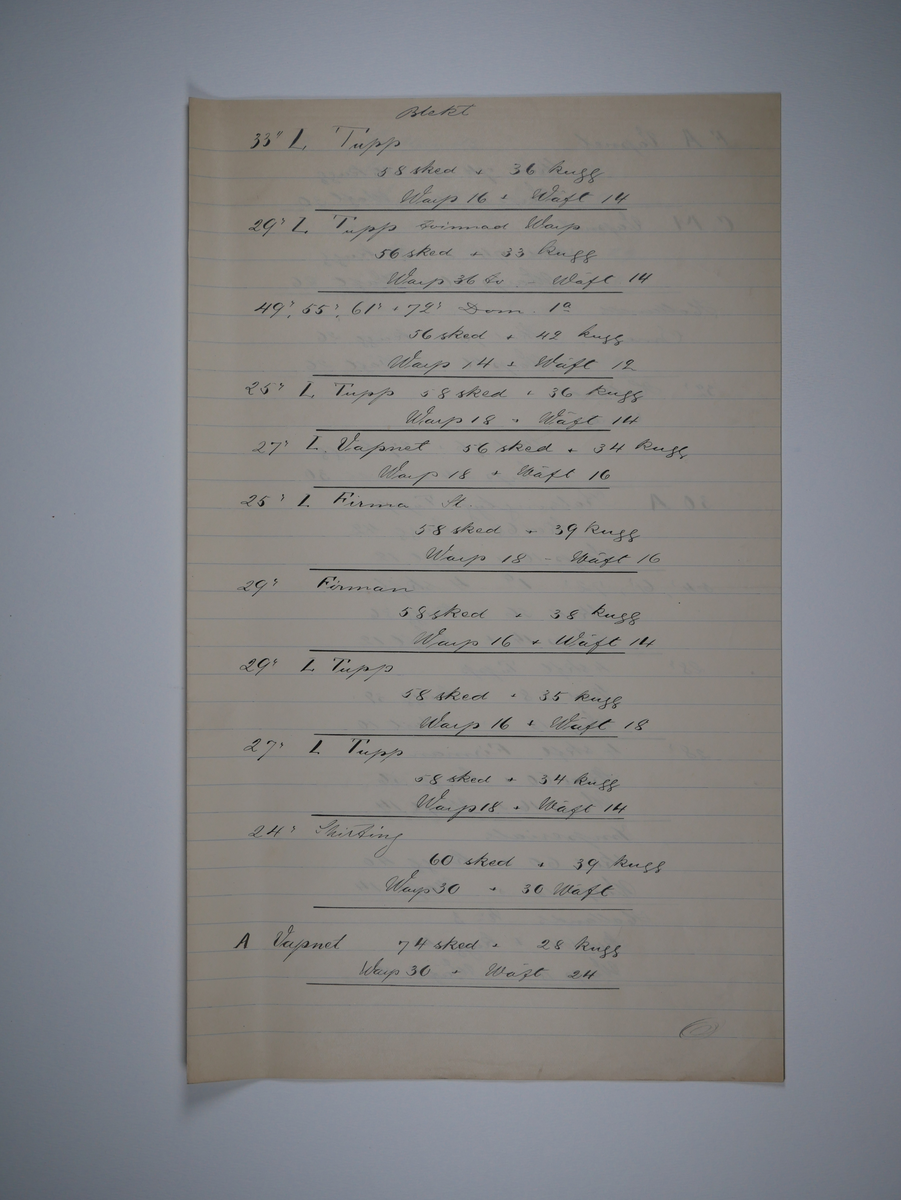 Blekt
33" L Tupp
58 sked + 36 kugg
Warp 16 + Wäft 14
29" L Tupp tvinnad Warp
56 sked + 33 kugg
Warp 36 tv - Wäft 14
49", 55", 61" + 72" Dom 1a
56 sked + 42 kugg
Warp 14 + Wäft 12
25" L Tupp 58 sked + 36 kugg
Warp 18 + Wäft 14
27" L. Vapnet 56 sked + 34 kugg
Warp 18 + Wäft 16
25" L Firma St.
58 sked + 39 kugg
Warp 18 - Wäft 16
29" Firman
58 sked + 38 kugg
Warp 16 + Wäft 14
29" L Tupp
58 sked + 35 kugg
Warp 16 + Wäft 18
27" L Tupp
58 sked + 34 kugg
Warp 18 + Wäft 14
24" Shirting
60 sked + 39 kugg
Warp 30 + 30 Wäft
A Vapnet 74 sked + 28 kugg
Warp 30 + Wäft 24